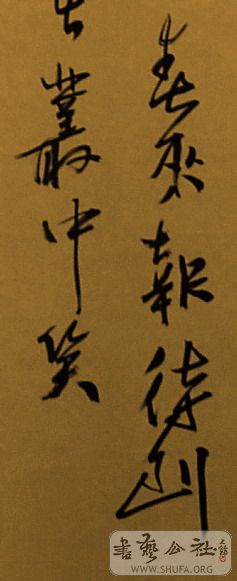 春來報待到
叢中笑
書藝公社
WWW.SHUFA.ORG